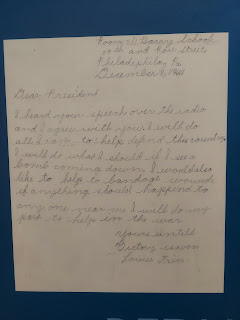 Room 211 Geary School
10th and Rose Streets
Philadelphia, Pa
December 9, 1941
Dear President
I heard your speech over the radio
and I agree with you. I will do
all I can to help defend this country
I will do what I should if I see a
bomb coming down. I would also
like to help to bandage wounds
if anything should happend to
any one near me I will do my
part to help in the war
Yours until
Victory is won